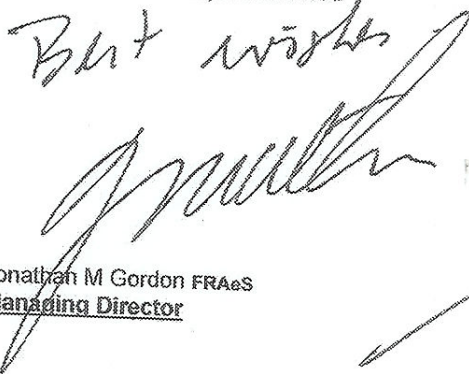 Best wishes
onathan M Gordon FRAeS
anaging Director